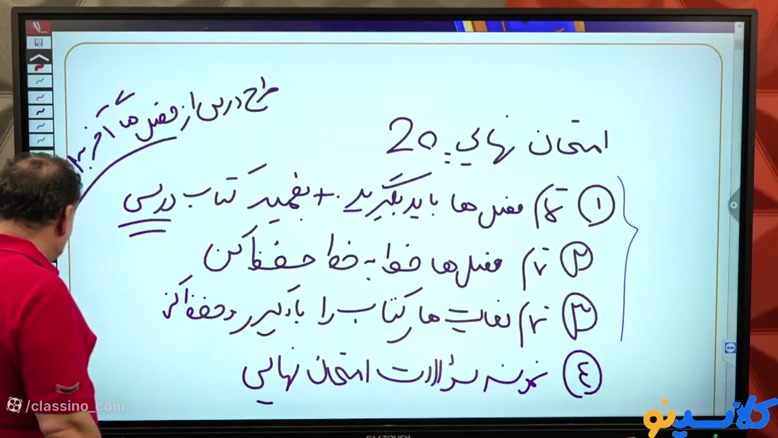 طرح درس از فصل ها آخر به
امتحان نهایی: 20
① تمام فصل ها باید بگیرید. + بفهمید کتاب درسی
② تمام فصل ها خط به خط حفظ کن
③ تمام فعالیت های کتاب را یادگیر و حفظ کن
④ نمونه سوالات امتحان نهایی
/classino_com
کلاسینو